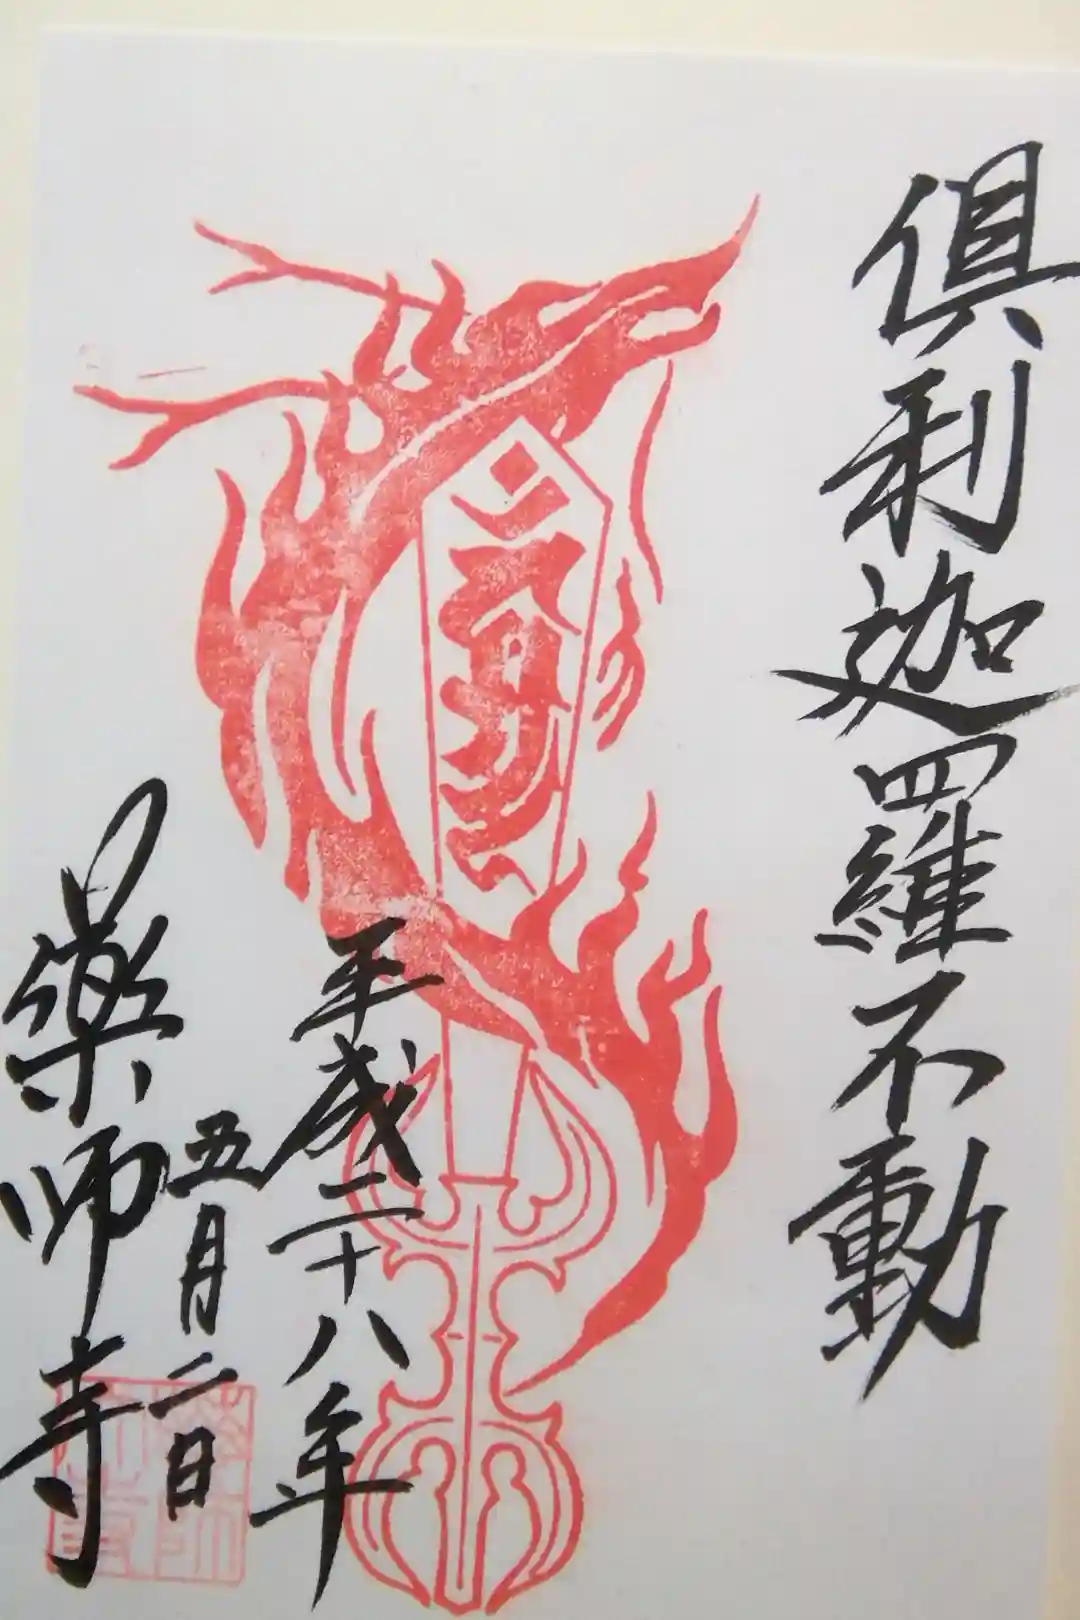 俱利迦羅不動
平成二十八年
五月二日
藥师寺